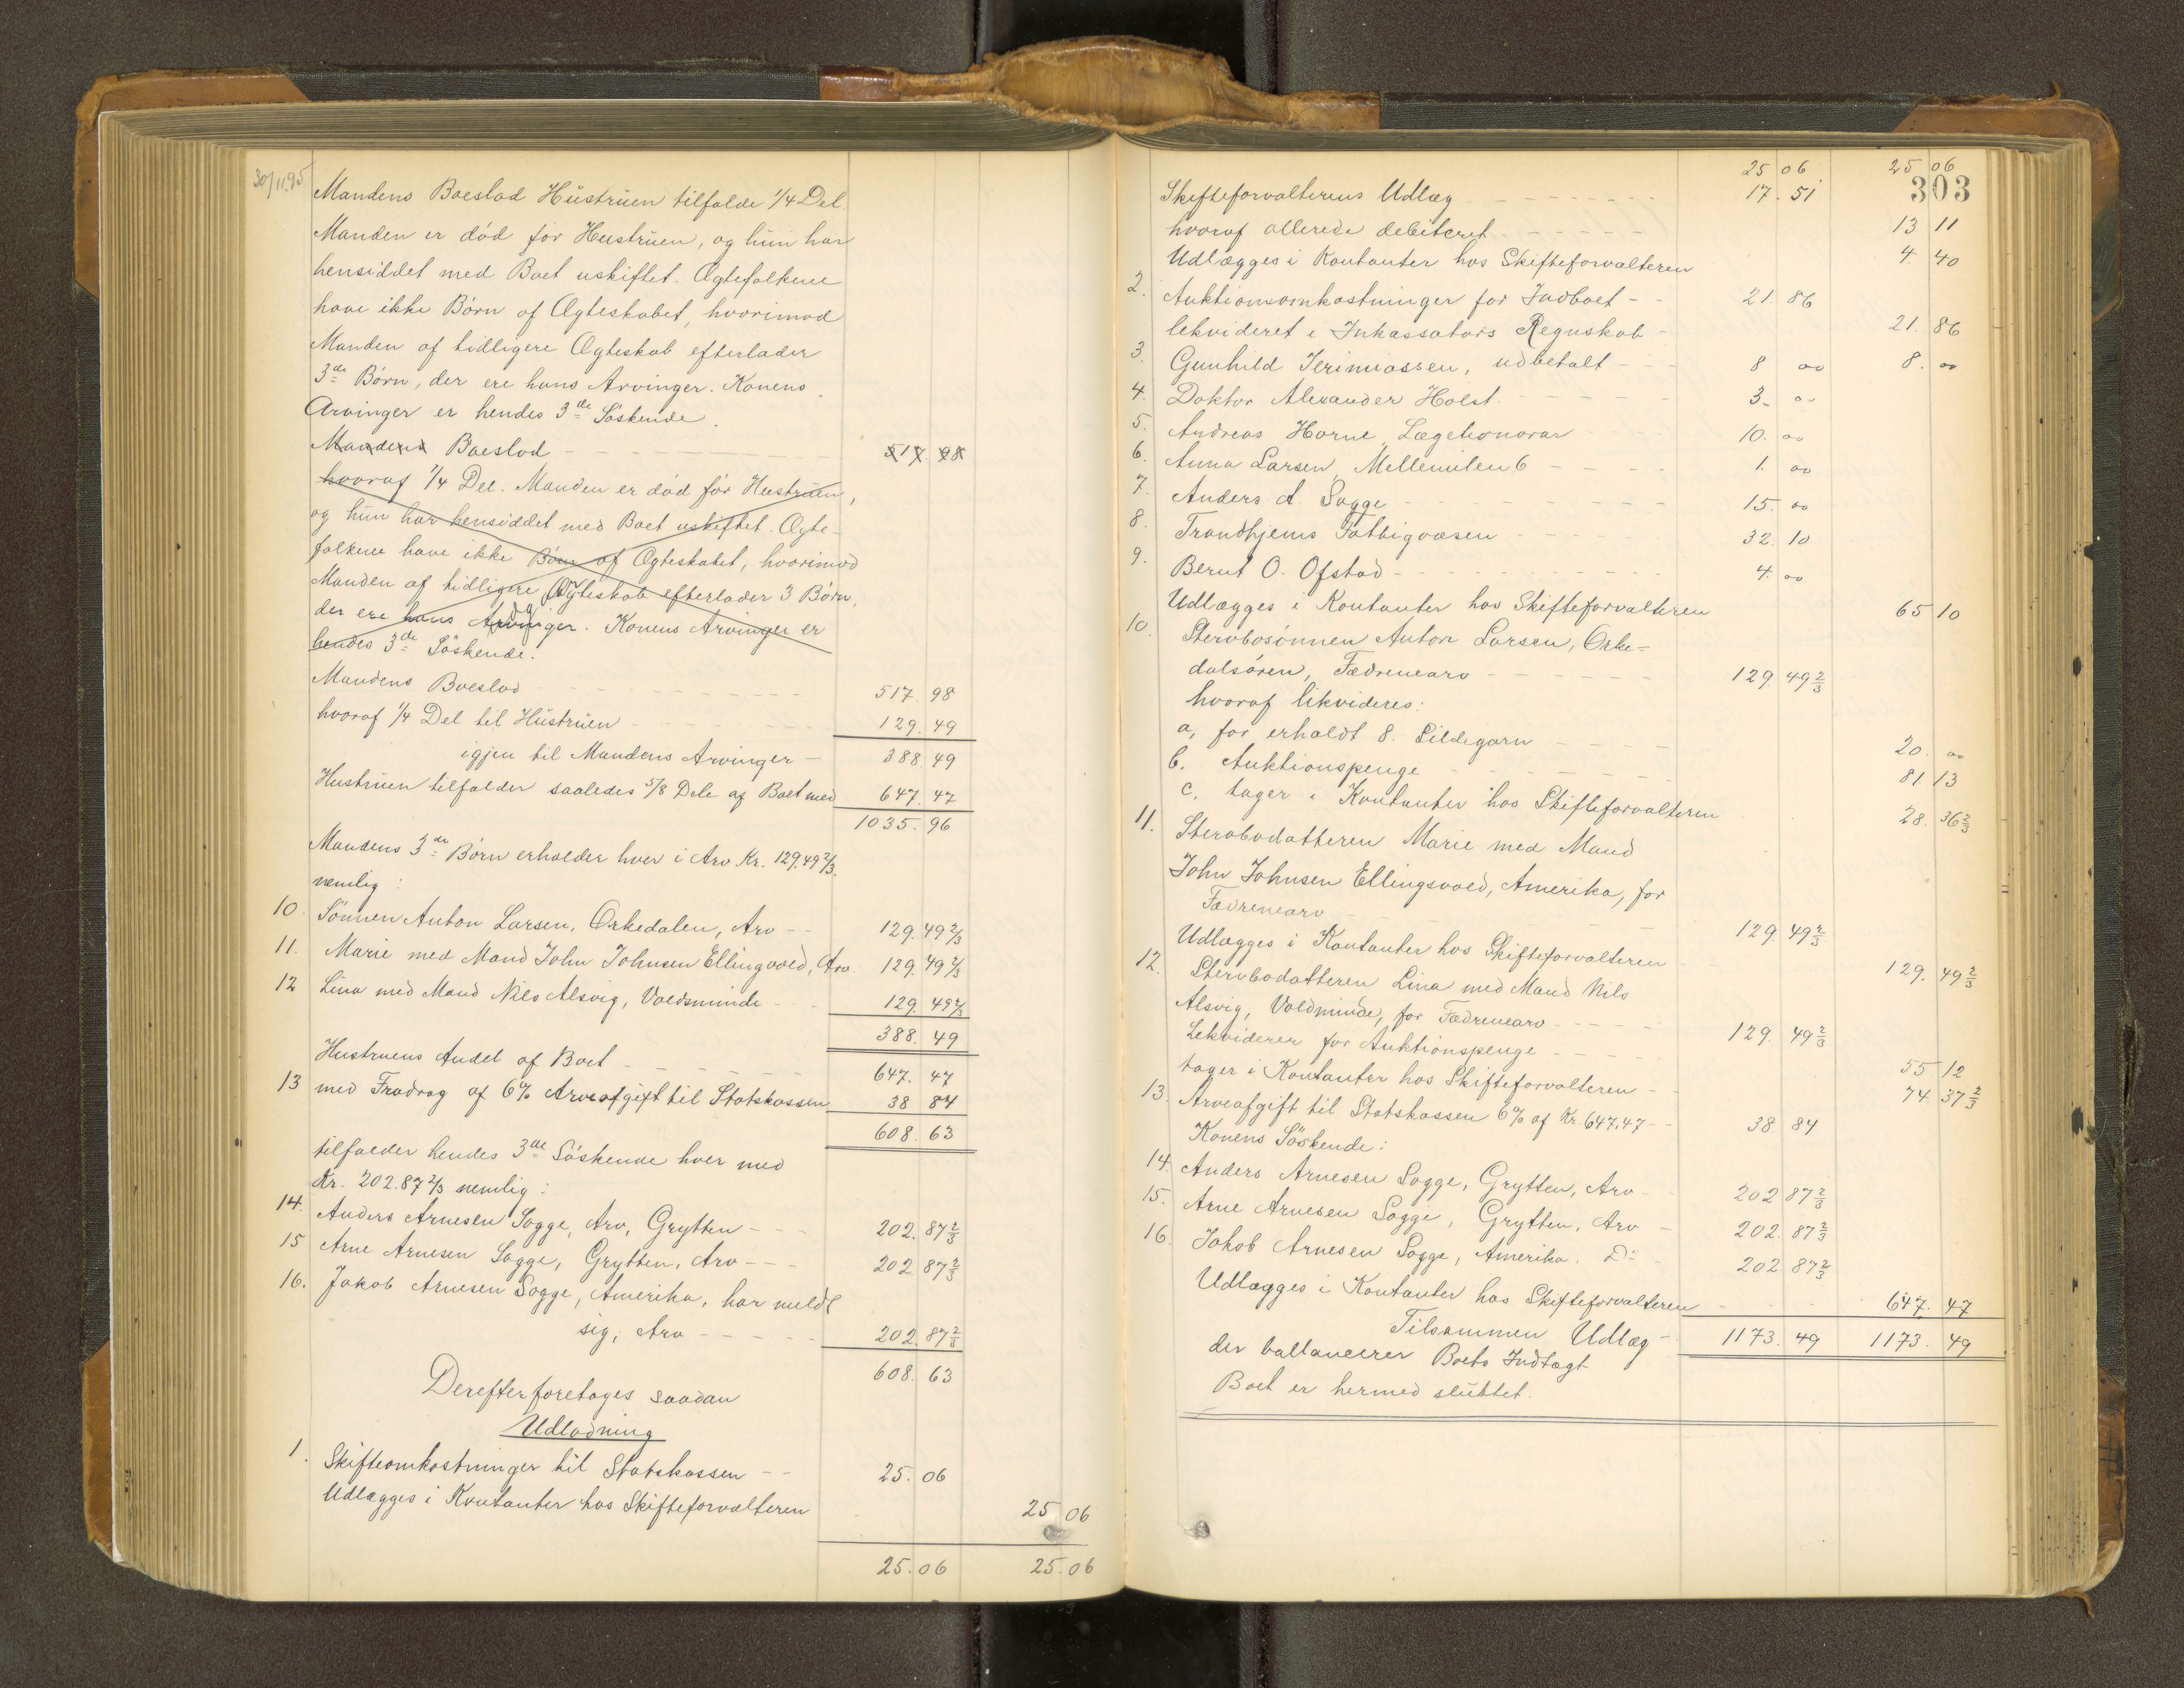 30/11.95
Mandens Boeslod Hüstrüen tilfalde 1/4 Del.
Manden er död för Hustrüen, og hün har
hensiddet med Boet uskiftet. Ægtefolkene
have ikke Börn af Ægteskabet, hvorimod
Manden af tidligere Ægteskab efterlader
3de Börn, der ere hans Arvinger. Konens
Arvinger er hendes 3de Söskende.
Mandens Boeslod 517. 98
hvoraf 1/4 Del. Manden er död för Hustrüen,
og hün har hensiddet med Boet uskiftet. Ægte-
folkene have ikke Börn af Ægteskabet, hvorimod
Manden af tidligere Ægteskab efterlader 3 Börn,
der ere hans Arvinger. Konens Arvinger er
hendes 3de Söskende.
Mandens Boeslod 517. 98
hvoraf 1/4 Del til Hüstrüen 129. 49
igjen til Mandens Arvinger 388. 49
Hustrüen tilfalder saaledes 5/8 Dele af Boet med 647. 47
1035. 96
Mandens 3de Börn erholder hver i Arv Kr. 129.49 2/3.
nemlig:
10. Sönnen Anton Larsen, Orkedalen, Arv 129. 49 2/3
11. Marie med Mand John Johnsen Ellingvold, Arv. 129. 49 2/3
12 Lina med Mand Nils Alsvig, Voldsminde 129. 49 2/3
388. 49
Hustruens Andel af Boet 647. 47
13 med Fradrag af 6% Arveafgift til Statskassen 38 84
608. 63
tilfalder hendes 3de Söskende hver med
Kr. 202.87 2/3 nemlig:
14. Anders Arnesen Sogge, Arv, Grytten 202. 87 2/3
15 Arne Arnesen Sogge, Grytten, Arv 202. 87 2/3
16. Jakob Arnesen Sogge, Amerika, har meldt
sig, Arv 202. 87 2/3
608. 63
Derefter foretages saadan
Udlodning
1. Skifteomkostninger til Statskassen 25. 06
Udlægges i Kontanter hos Skifteforvalteren 25 06
25. 06 25. 06
25 06 25 06
303
Skifteforvalterens Udlæg 17. 51
hvoraf allerede debiteret 13 11
Udlægges i Kontanter hos Skifteforvalteren 4. 40
2. Auktionsomkostninger for Indboet 21. 86
likvideret i Inkassators Regnskab 21. 86
3. Gunhild Jerimiassen, udbetalt 8 00 8. 00
4. Doktor Alexander Holst. 3. 00
5. Andreas Horne, Lægehonorar 10. 00
6. Anna Larsen, Mellemilen 6 1. 00
7. Anders A. Sogge 15. 00
8. Trondhjems Fattigvæsen 32. 10
9. Bernt O. Ofstad 4. 00
Udlægges i Kontanter hos Skifteforvalteren 65 10
10. Stervbosönnen Anton Larsen, Orke=
dalsören, Fædrenearv 129 49 2/3
hvoraf likvideres:
a, for erholdt 8. Sildegarn 20. 00
b. Auktionspenge 81. 13
c, tager i Kontanter hos Skifteforvalteren 28. 36 2/3
11. Stervbodatteren Marie med Mand
John Johnsen Ellingsvold, Amerika, for
Fædrenearv 129. 49 2/3
Udlægges i Kontanter hos Skifteforvalteren 129. 49 2/3
12. Stervbodatteren Lina med Mand Nils
Alsvig, Voldminde, for Fædrenearv 129. 49 2/3
Likviderer for Auktionspenge 55 12
tager i Kontanter hos Skifteforvalteren 74. 37 2/3
13. Arveafgift til Statskassen 6% af Kr. 647.47 38. 84
Konens Söskende:
14. Anders Arnesen Sogge, Grytten, Arv 202 87 2/3
15. Arne Arnesen Sogge, Grytten, Arv 202. 87 2/3
16. Jakob Arnesen Sogge, Amerika. Do 202. 87 2/3
Udlægges i Kontanter hos Skifteforvalteren 647. 47
Tilsammen Udlæg 1173. 49 1173. 49
der ballancerer Boets Indtægt
Boet er hermed slüttet.